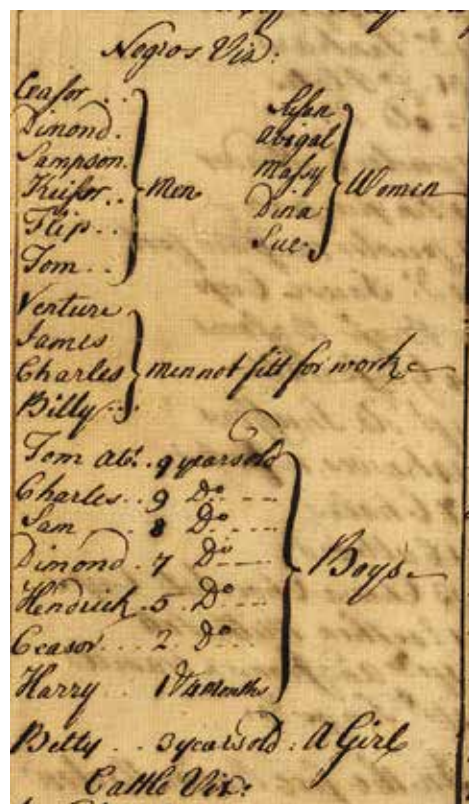 Negros Viz:
Ceasor . .
Dimond .
Sampson .
Keisor . .
Flip . .
Tom . .
Men
Susan
Abigal
Massy
Dina
Sue .
Women
Venture
James
Charles
Billy . . .
Men not fitt for work
Tom abt. 9 years old
Charles . . 9 Do . . .
Sam 8 Do . . .
Dimond . 7 Do . . .
Hendrick . 5 Do . . .
Ceasor . . . 2 Do . . .
Harry . . 1 & 4 Months
Boys
Betty . . 3 years old : A Girl
Cattle Viz: